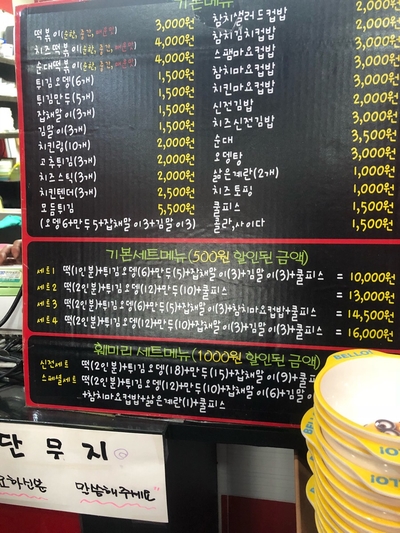 기본메뉴
떡볶이(순한, 중간, 매운맛) 3,000원
치즈떡볶이(순한, 중간, 매운맛) 4,000원
순대떡볶이(순한, 중간, 매운맛) 4,000원
튀김오뎅(6개) 1,500원
튀김만두(5개) 1,500원
잡채말이(3개) 1,500원
김말이(3개) 1,500원
치킨링(10개) 2,000원
고추튀김(3개) 2,000원
치즈스틱(3개) 2,000원
치킨텐더(3개) 2,500원
모듬튀김 5,500원
(오뎅6+만두5+잡채말이3+김말이3)
참치샐러드컵밥
참치김치컵밥
스팸마요컵밥
참치마요컵밥
치킨마요컵밥
신전김밥
치즈신전김밥
순대 3,500원
오뎅탕 3,000원
삶은계란(2개) 1,000원
치즈토핑
쿨피스 1,500원
콜라,사이다 1,500원
기본세트메뉴(500원 할인된 금액)
세트1 떡(1인분)+튀김오뎅(6)+만두(5)+잡채말이(3)+김말이(3)+쿨피스 = 10,000원
세트2 떡(2인분)+튀김오뎅(12)+만두(10)+쿨피스 = 13,000원
세트3 떡(2인분)+튀김오뎅(6)+만두(5)+잡채말이(3)+참치마요컵밥+쿨피스 = 14,500원
세트4 떡(2인분)+튀김오뎅(12)+만두(10)+잡채말이(3)+김말이(3)+쿨피스 = 16,000원
훼미리 세트메뉴(1000원 할인된 금액)
신전세트 떡(2인분)+튀김오뎅(18)+만두(15)+잡채말이(9)+쿨피
스페셜세트 떡(2인분)+튀김오뎅(12)+만두(10)+잡채말이(6)+김말
+참치마요컵밥+삶은계란(1)+쿨피스
단무지
요하신분 말씀해주세요